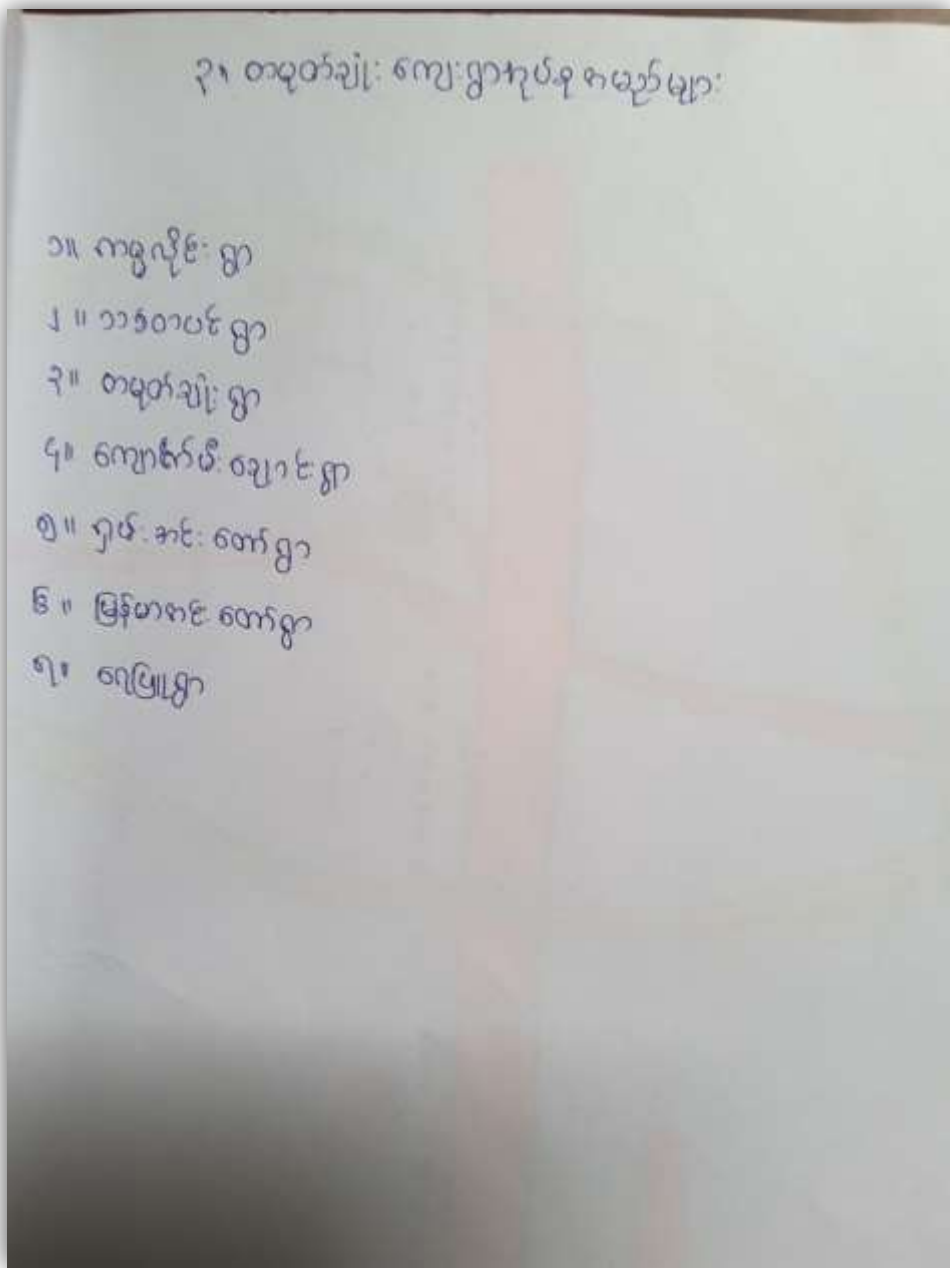 ၃၊ တမုတ်ချုံး ကျေးရွာအုပ်စု အမည်များ
၁။ ကဇွလိုင်း ရွာ
၂။ သင်္ဘောပင် ရွာ
၃။ တမုတ်ချုံး ရွာ
၄။ ကျောက်မီးချောင်းရွာ
၅။ ရှမ်းအင်းတော်ရွာ
၆။ မြန်မာအင်းတော်ရွာ
၇။ ရေဖြူရွာ